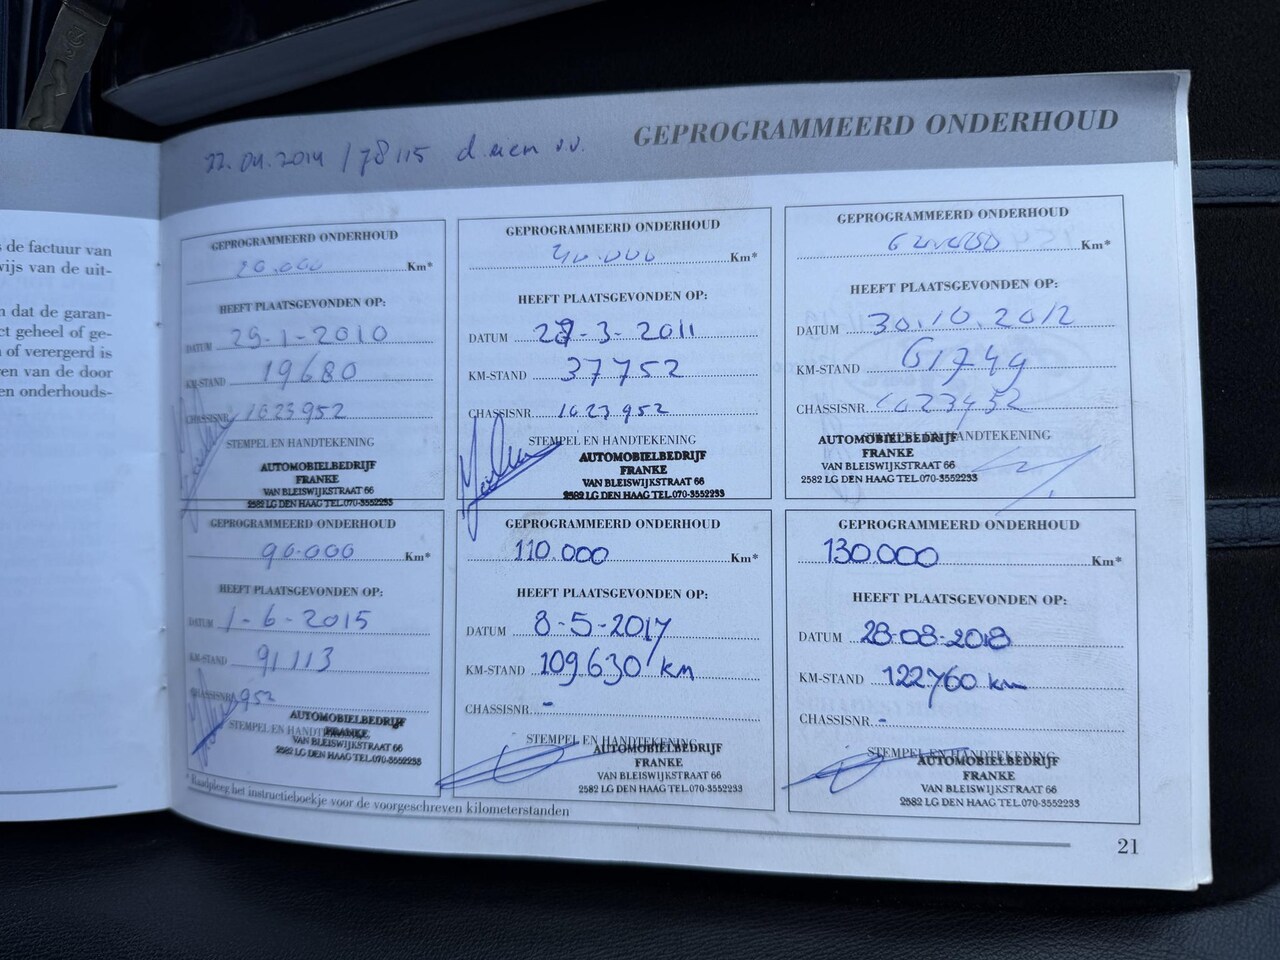 s de factuur van
wijs van de uit-
n dat de garan-
ct geheel of ge-
of verergerd is
ren van de door
en onderhouds-
22.04.2014 / 78115
GEPROGRAMMEERD ONDERHOUD
GEPROGRAMMEERD ONDERHOUD
20.000 Km*
HEEFT PLAATSGEVONDEN OP:
DATUM 29-1-2010
KM-STAND 19680
CHASSISNR. 1023952
STEMPEL EN HANDTEKENING
AUTOMOBIELBEDRIJF
FRANKE
VAN BLEISWIJKSTRAAT 66
2582 LG DEN HAAG TEL.070-3552233
GEPROGRAMMEERD ONDERHOUD
40.000 Km*
HEEFT PLAATSGEVONDEN OP:
DATUM 28-3-2011
KM-STAND 37752
CHASSISNR. 1023952
STEMPEL EN HANDTEKENING
AUTOMOBIELBEDRIJF
FRANKE
VAN BLEISWIJKSTRAAT 66
2582 LG DEN HAAG TEL.070-3552233
GEPROGRAMMEERD ONDERHOUD
Km*
HEEFT PLAATSGEVONDEN OP:
DATUM 30.10.2012
KM-STAND 61749
CHASSISNR. 1023952
STEMPEL EN HANDTEKENING
AUTOMOBIELBEDRIJF
FRANKE
VAN BLEISWIJKSTRAAT 66
2582 LG DEN HAAG TEL.070-3552233
GEPROGRAMMEERD ONDERHOUD
90.000 Km*
HEEFT PLAATSGEVONDEN OP:
DATUM 1-6-2015
KM-STAND 91113
CHASSISNR. 952
STEMPEL EN HANDTEKENING
AUTOMOBIELBEDRIJF
FRANKE
VAN BLEISWIJKSTRAAT 66
2582 LG DEN HAAG TEL.070-3552233
GEPROGRAMMEERD ONDERHOUD
110.000 Km*
HEEFT PLAATSGEVONDEN OP:
DATUM 8-5-2017
KM-STAND 109630 km
CHASSISNR. -
STEMPEL EN HANDTEKENING
AUTOMOBIELBEDRIJF
FRANKE
VAN BLEISWIJKSTRAAT 66
2582 LG DEN HAAG TEL.070-3552233
GEPROGRAMMEERD ONDERHOUD
130.000 Km*
HEEFT PLAATSGEVONDEN OP:
DATUM 28-08-2018
KM-STAND 122760 km
CHASSISNR. -
STEMPEL EN HANDTEKENING
AUTOMOBIELBEDRIJF
FRANKE
VAN BLEISWIJKSTRAAT 66
2582 LG DEN HAAG TEL.070-3552233
* Raadpleeg het instructieboekje voor de voorgeschreven kilometerstanden
21